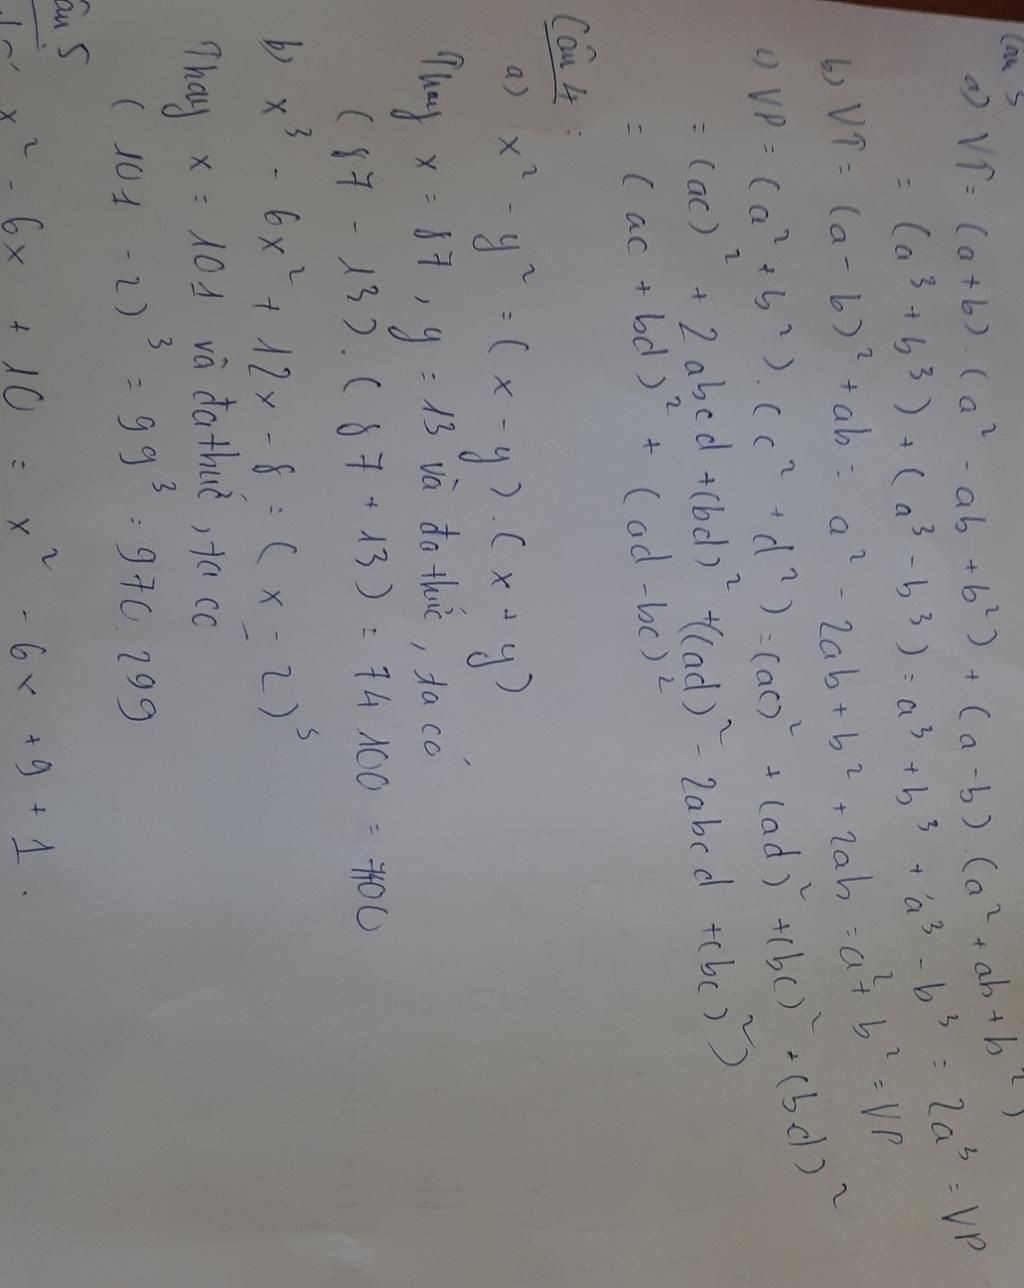 Câu 3
a) VT = (a+b).(a² - ab + b²) + (a-b).(a² + ab + b²)
= (a³ + b³) + (a³ - b³) = a³ + b³ + a³ - b³ = 2a³ = VP
b) VT = (a - b)² + ab = a² - 2ab + b² + 2ab = a² + b² = VP
c) VP = (a² + b²).(c² + d²) = (ac)² + (ad)² + (bc)² + (bd)²
= (ac)² + 2abcd + (bd)² + ((ad)² - 2abcd + (bc)²)
= (ac + bd)² + (ad - bc)²
Câu 4:
a) x² - y² = (x - y).(x + y)
Thay x = 87, y = 13 và đa thức, ta có
(87 - 13).(87 + 13) = 74 100 = 7400
b) x³ - 6x² + 12x - 8 = (x - 2)³
Thay x = 101 và đa thức, ta có
(101 - 2)³ = 99³ = 970.299
Câu 5
x² - 6x + 10 = x² - 6x + 9 + 1.